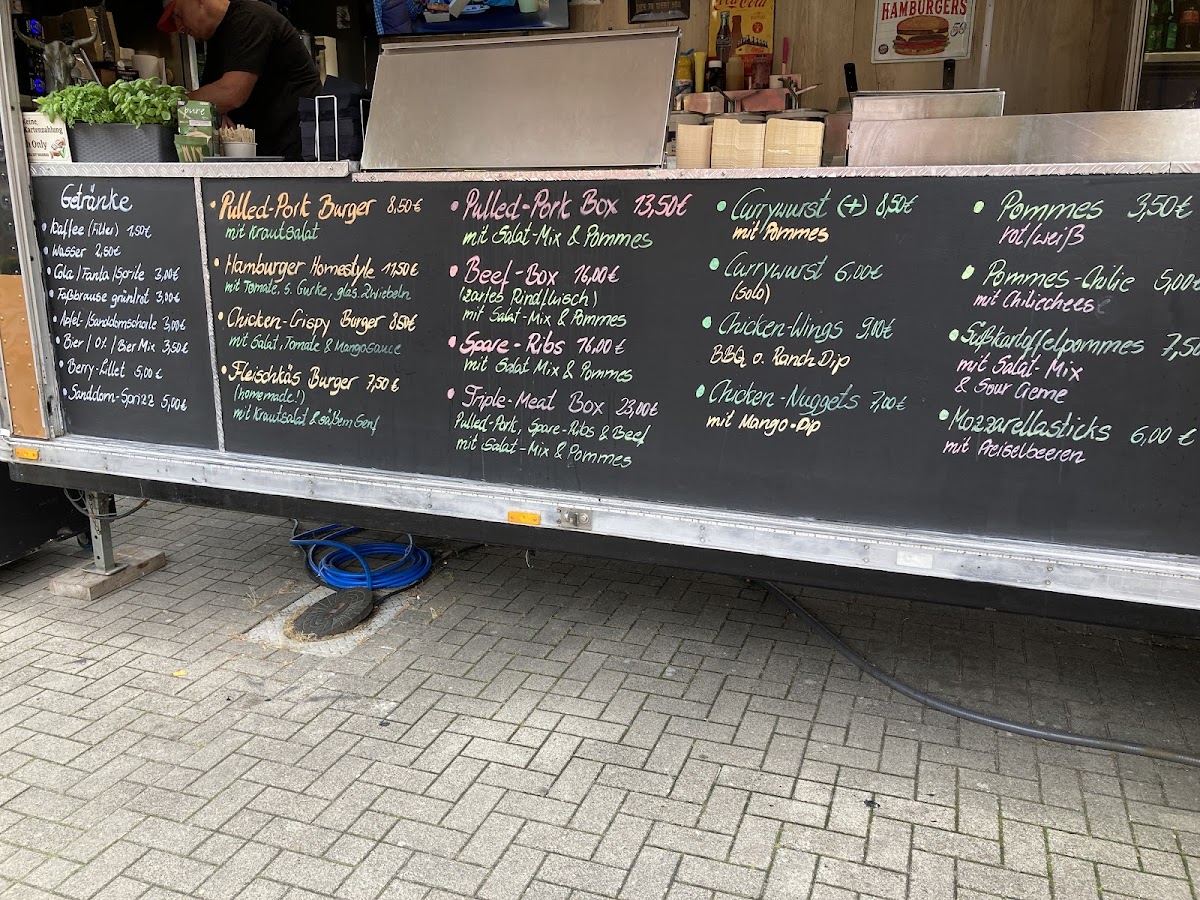 Coca-Cola
HAMBURGERS
5¢
pure
Keine
Kartenzahlung
Only
Getränke
• Kaffee (Filter) 1,50€
• Wasser 2,50€
• Cola / Fanta / Sprite 3,00€
• Faßbrause grün/rot 3,00€
• Apfel- / Sanddornschorle 3,00€
• Bier / 0% / Bier Mix 3,50€
• Berry-Lillet 5,00€
• Sanddorn-Sprizz 5,00€
• Pulled-Pork Burger 8,50€
mit Krautsalat
• Hamburger Homestyle 11,50€
mit Tomate, s. Gurke, glas. Zwiebeln
• Chicken-Crispy Burger 8,50€
mit Salat, Tomate & Mangosauce
• Fleischkäs Burger 7,50€
(homemade!)
mit Krautsalat & süßem Senf
• Pulled-Pork Box 13,50€
mit Salat-Mix & Pommes
• Beef-Box 16,00€
(zartes Rindfleisch)
mit Salat-Mix & Pommes
• Spare-Ribs 16,00€
mit Salat Mix & Pommes
• Triple-Meat Box 23,00€
Pulled-Pork, Spare-Ribs & Beef
mit Salat-Mix & Pommes
• Currywurst (+) 8,50€
mit Pommes
• Currywurst 6,00€
(solo)
• Chicken-Wings 9,00€
BBQ o. Ranch Dip
• Chicken-Nuggets 7,00€
mit Mango-Dip
• Pommes 3,50€
rot/weiß
• Pommes-Chilie 5,00€
mit Chiliecheese
• Süßkartoffelpommes 7,50
mit Salat-Mix
& Sour Creme
• Mozzarellasticks 6,00€
mit Preiselbeeren